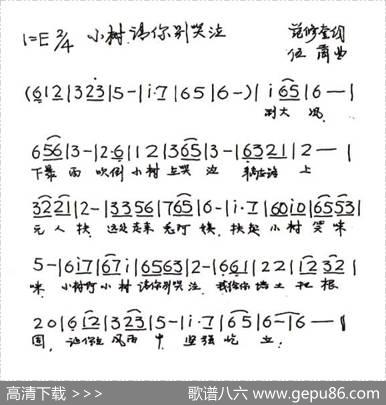 1=E 3/4 小树,请你别哭泣 范修奎词
伍嵩曲
(6 12|3 23|5 -|i·7|65|6 -)|i 65|6 —|
刮大风
656|3 -|2·6|12|365|3 -|6321|2 —|
下暴雨 吹倒小树在哭泣 上
3221|2 -|3356|765|6 -|i·7|60i0|6553|
无人扶 阿姨 扶起小树笑咪
5 -|6i7|67i|6563|2 -|661|22|12 32|
咪 小树呀小树请你别哭泣 我给你培土把根
20|6 12|3 23|5 -|i·7|65|6 - 16 —|
固 让你在风雨中 坚强屹立
高清下载 >>> 歌谱八六 www.gepu86.com